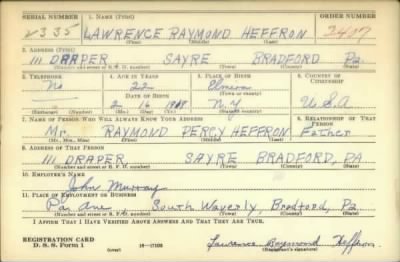 SERIAL NUMBER 1. NAME (Print) ORDER NUMBER
V335 LAWRENCE RAYMOND HEFFRON 2407
(First) (Middle) (Last)
2. ADDRESS (Print)
111 DRAPER SAYRE BRADFORD Pa.
(Number and street or R. F. D. number) (Town) (County) (State)
3. TELEPHONE 4. AGE IN YEARS 5. PLACE OF BIRTH 6. COUNTRY OF CITIZENSHIP
No 22 Elmira
DATE OF BIRTH (Town or county)
2 16 N.Y. U.S.A
(Exchange) (Number) (Mo.) (Day) (Yr.) (State or country)
7. NAME OF PERSON WHO WILL ALWAYS KNOW YOUR ADDRESS 8. RELATIONSHIP OF THAT PERSON
Mr. RAYMOND PERCY HEFFRON Father
(Mr., Mrs., Miss) (First) (Middle) (Last)
9. ADDRESS OF THAT PERSON
111 DRAPER SAYRE BRADFORD, PA
(Number and street or R. F. D. number) (Town) (County) (State)
10. EMPLOYER'S NAME
John Murray
11. PLACE OF EMPLOYMENT OR BUSINESS
Pa Ave South Waverly, Bradford, Pa
(Number and street or R. F. D. number) (Town) (County) (State)
I AFFIRM THAT I HAVE VERIFIED ABOVE ANSWERS AND THAT THEY ARE TRUE.
REGISTRATION CARD
D. S. S. Form 1 (over) 16—17105 Lawrence Raymond Heffron
(Registrant's signature)